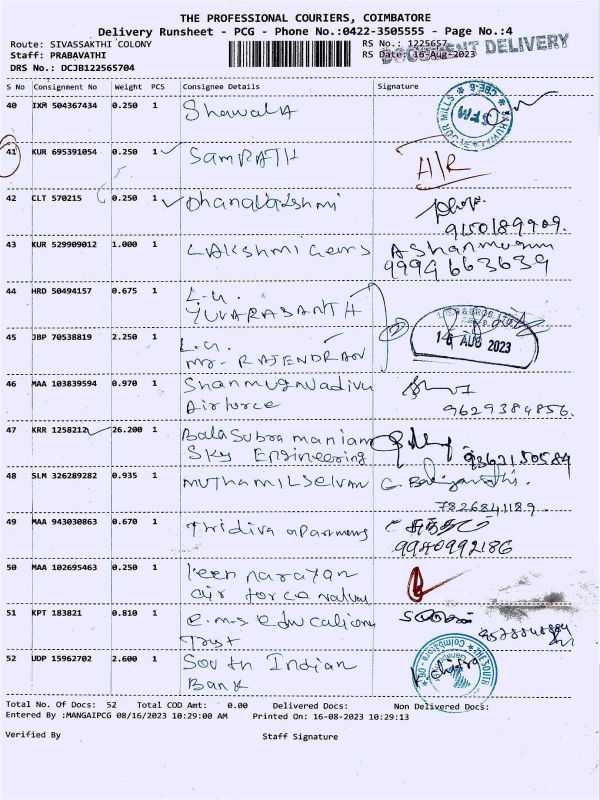 THE PROFESSIONAL COURIERS, COIMBATORE
Delivery Runsheet - PCG - Phone No.:0422-3505555 - Page No.:4
Route: SIVASSAKTHI COLONY RS No.: 1225657
Staff: PRABAVATHI RS Date: 16-Aug-2023 DOCUMENT DELIVERY
DRS No.: DCJB122565704
S No Consignment No Weight PCS Consignee Details Signature
40 IXM 504367434 0.250 1 Shawala
41 KUR 695391054 0.250 1 SamRATH H/R
42 CLT 570215 0.250 1 Dhanalakshmi
9150189909.
43 KUR 529909012 1.000 1 LAKshmi Gems A Shanmugam
9994663639
44 HRD 50494157 0.675 1 L.G.
YUVARASANTH
45 JBP 70538819 2.250 1 L.G. 16 AUG 2023
Mr- RAJENDRAN
46 MAA 103839594 0.970 1 Shanmugavadivu
Airforce 9629384856.
47 KRR 1258212 26.200 1 Balasubramaniam
Sky Engineering 9363150584
48 SLM 326289282 0.935 1 MUTHAMILSELVAN
7826841189.
49 MAA 943030863 0.670 1 Thridiva apartments
9940992186
50 MAA 102695463 0.250 1 narayan
air force
51 KPT 183821 0.810 1 e.m.s educational
Trust
52 UDP 15962702 2.600 1 South Indian THE SOUTH
Bank
Total No. Of Docs: 52 Total COD Amt: 0.00 Delivered Docs: Non Delivered Docs:
Entered By :MANGAIPCG 08/16/2023 10:29:00 AM Printed On: 16-08-2023 10:29:13
Verified By Staff Signature